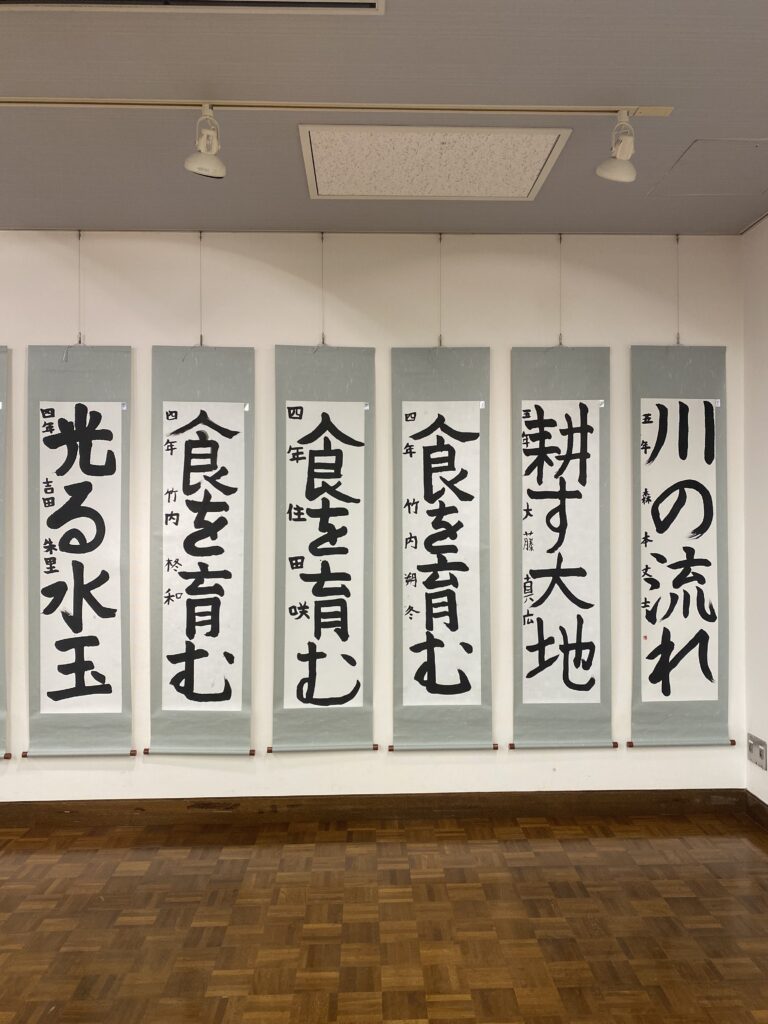 川の流れ
五年 森本丈士
耕す大地
五年 大藤真広
食を育む
四年 竹内朔冬
食を育む
四年 住田咲
食を育む
四年 竹内柊和
光る水玉
四年 吉田朱里